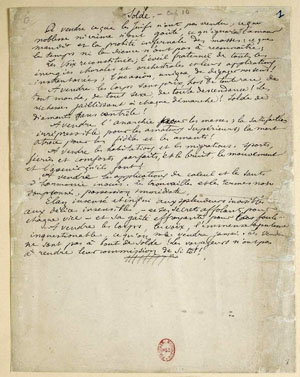 Solde
A vendre ce que les Juifs n'ont pas vendu, ce que
noblesse ni crime n'ont goûté, ce qu'ignorent l'amour
maudit et la probité infernale des masses : ce que
le temps ni la science n'ont pas à reconnaître :
Les Voix reconstituées ; l'éveil fraternel de toutes les
énergies chorales et orchestrales et leurs applications
instantanées ; l'occasion, unique, de dégager nos sens !
A vendre les Corps sans prix, hors de toute race, de
tout monde, de tout sexe, de toute descendance ! Les
richesses jaillissant à chaque démarche ! Solde de
diamants sans contrôle !
A vendre l'anarchie pour les masses ; la satisfaction
irrépressible pour les amateurs supérieurs ; la mort
atroce pour les fidèles et les amants !
A vendre les habitations et les migrations, sports,
féeries et comforts parfaits, et le bruit, le mouvement
et l'avenir qu'ils font !
A vendre les applications de calcul et les sauts
d'harmonie inouïs. Les trouvailles et les termes non
soupçonnés, possession immédiate,
Elan insensé et infini aux splendeurs invisibles,
aux délices insensibles, — et ses secrets affolants pour
chaque vice — et sa gaîté effrayante pour la foule —
— A vendre les Corps, les voix, l'immense opulence
inquestionable, ce qu'on ne vendra jamais. Les vendeurs
ne sont pas à bout de solde ! Les voyageurs n'ont pas
à rendre leur commission de si tôt !